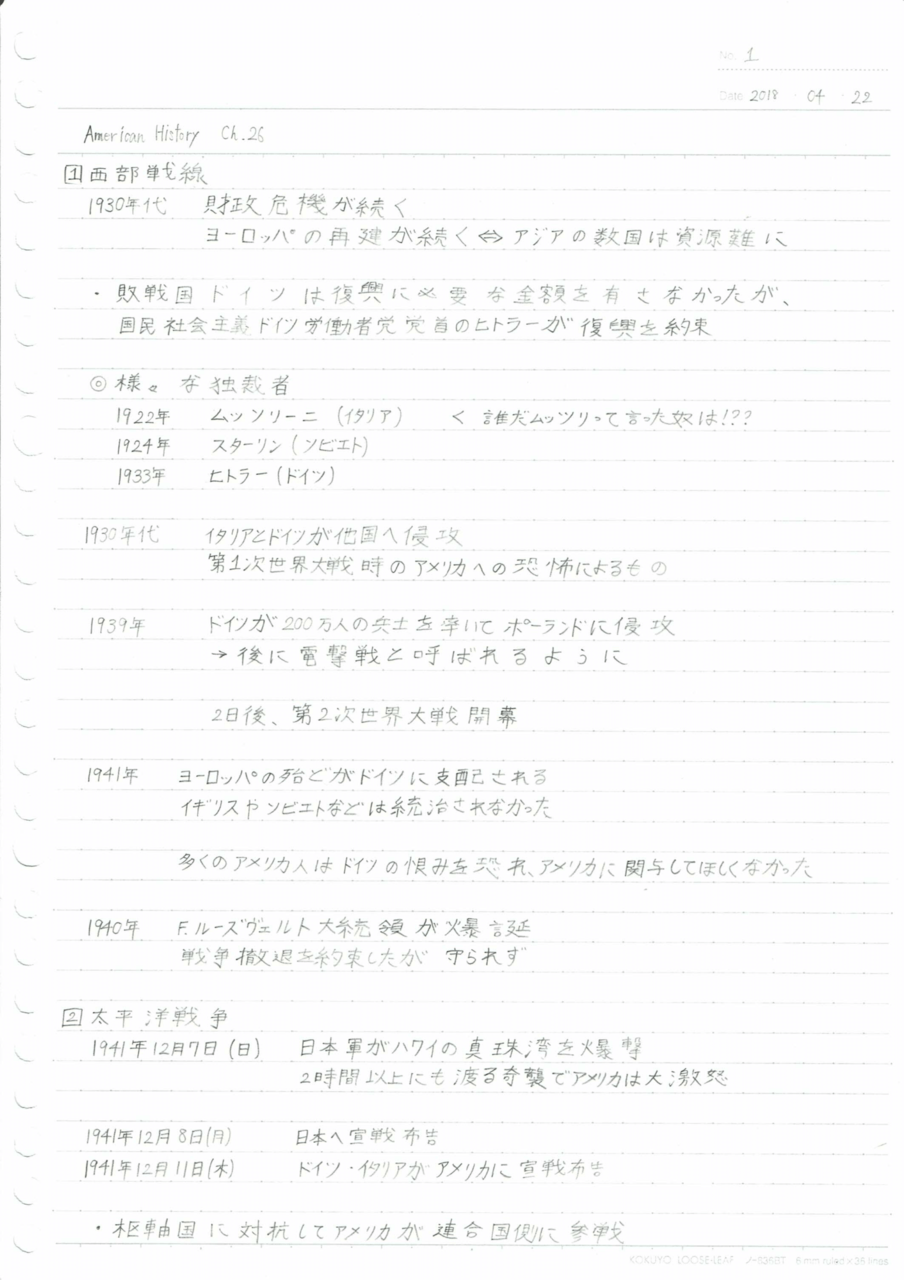 No. 1
Date 2018 ・ 04 ・ 22
American History Ch.26
1 西部戦線
1930年代 財政危機が続く
ヨーロッパの再建が続く ⇔ アジアの数国は資源難に
・敗戦国ドイツは復興に必要な金額を有さなかったが、
国民社会主義ドイツ労働者党党首のヒトラーが復興を約束
◎様々な独裁者
1922年 ムッソリーニ (イタリア) < 誰だムッツリって言った奴は!??
1924年 スターリン (ソビエト)
1933年 ヒトラー (ドイツ)
1930年代 イタリアとドイツが他国へ侵攻
第1次世界大戦時のアメリカへの恐怖によるもの
1939年 ドイツが200万人の兵士を率いてポーランドに侵攻
→ 後に電撃戦と呼ばれるように
2日後、第2次世界大戦開幕
1941年 ヨーロッパの殆どがドイツに支配される
イギリスやソビエトなどは統治されなかった
多くのアメリカ人はドイツの恨みを恐れ、アメリカに関与してほしくなかった
1940年 F.ルーズヴェルト大統領が爆誕
戦争撤退を約束したが守られず
2 太平洋戦争
1941年12月7日 (日) 日本軍がハワイの真珠湾を爆撃
2時間以上にも渡る奇襲でアメリカは大激怒
1941年12月8日(月) 日本へ宣戦布告
1941年12月11日(木) ドイツ・イタリアがアメリカに宣戦布告
・枢軸国に対抗してアメリカが連合国側に参戦
KOKUYO LOOSE-LEAF ノ-836BT 6 mm ruled×36 lines